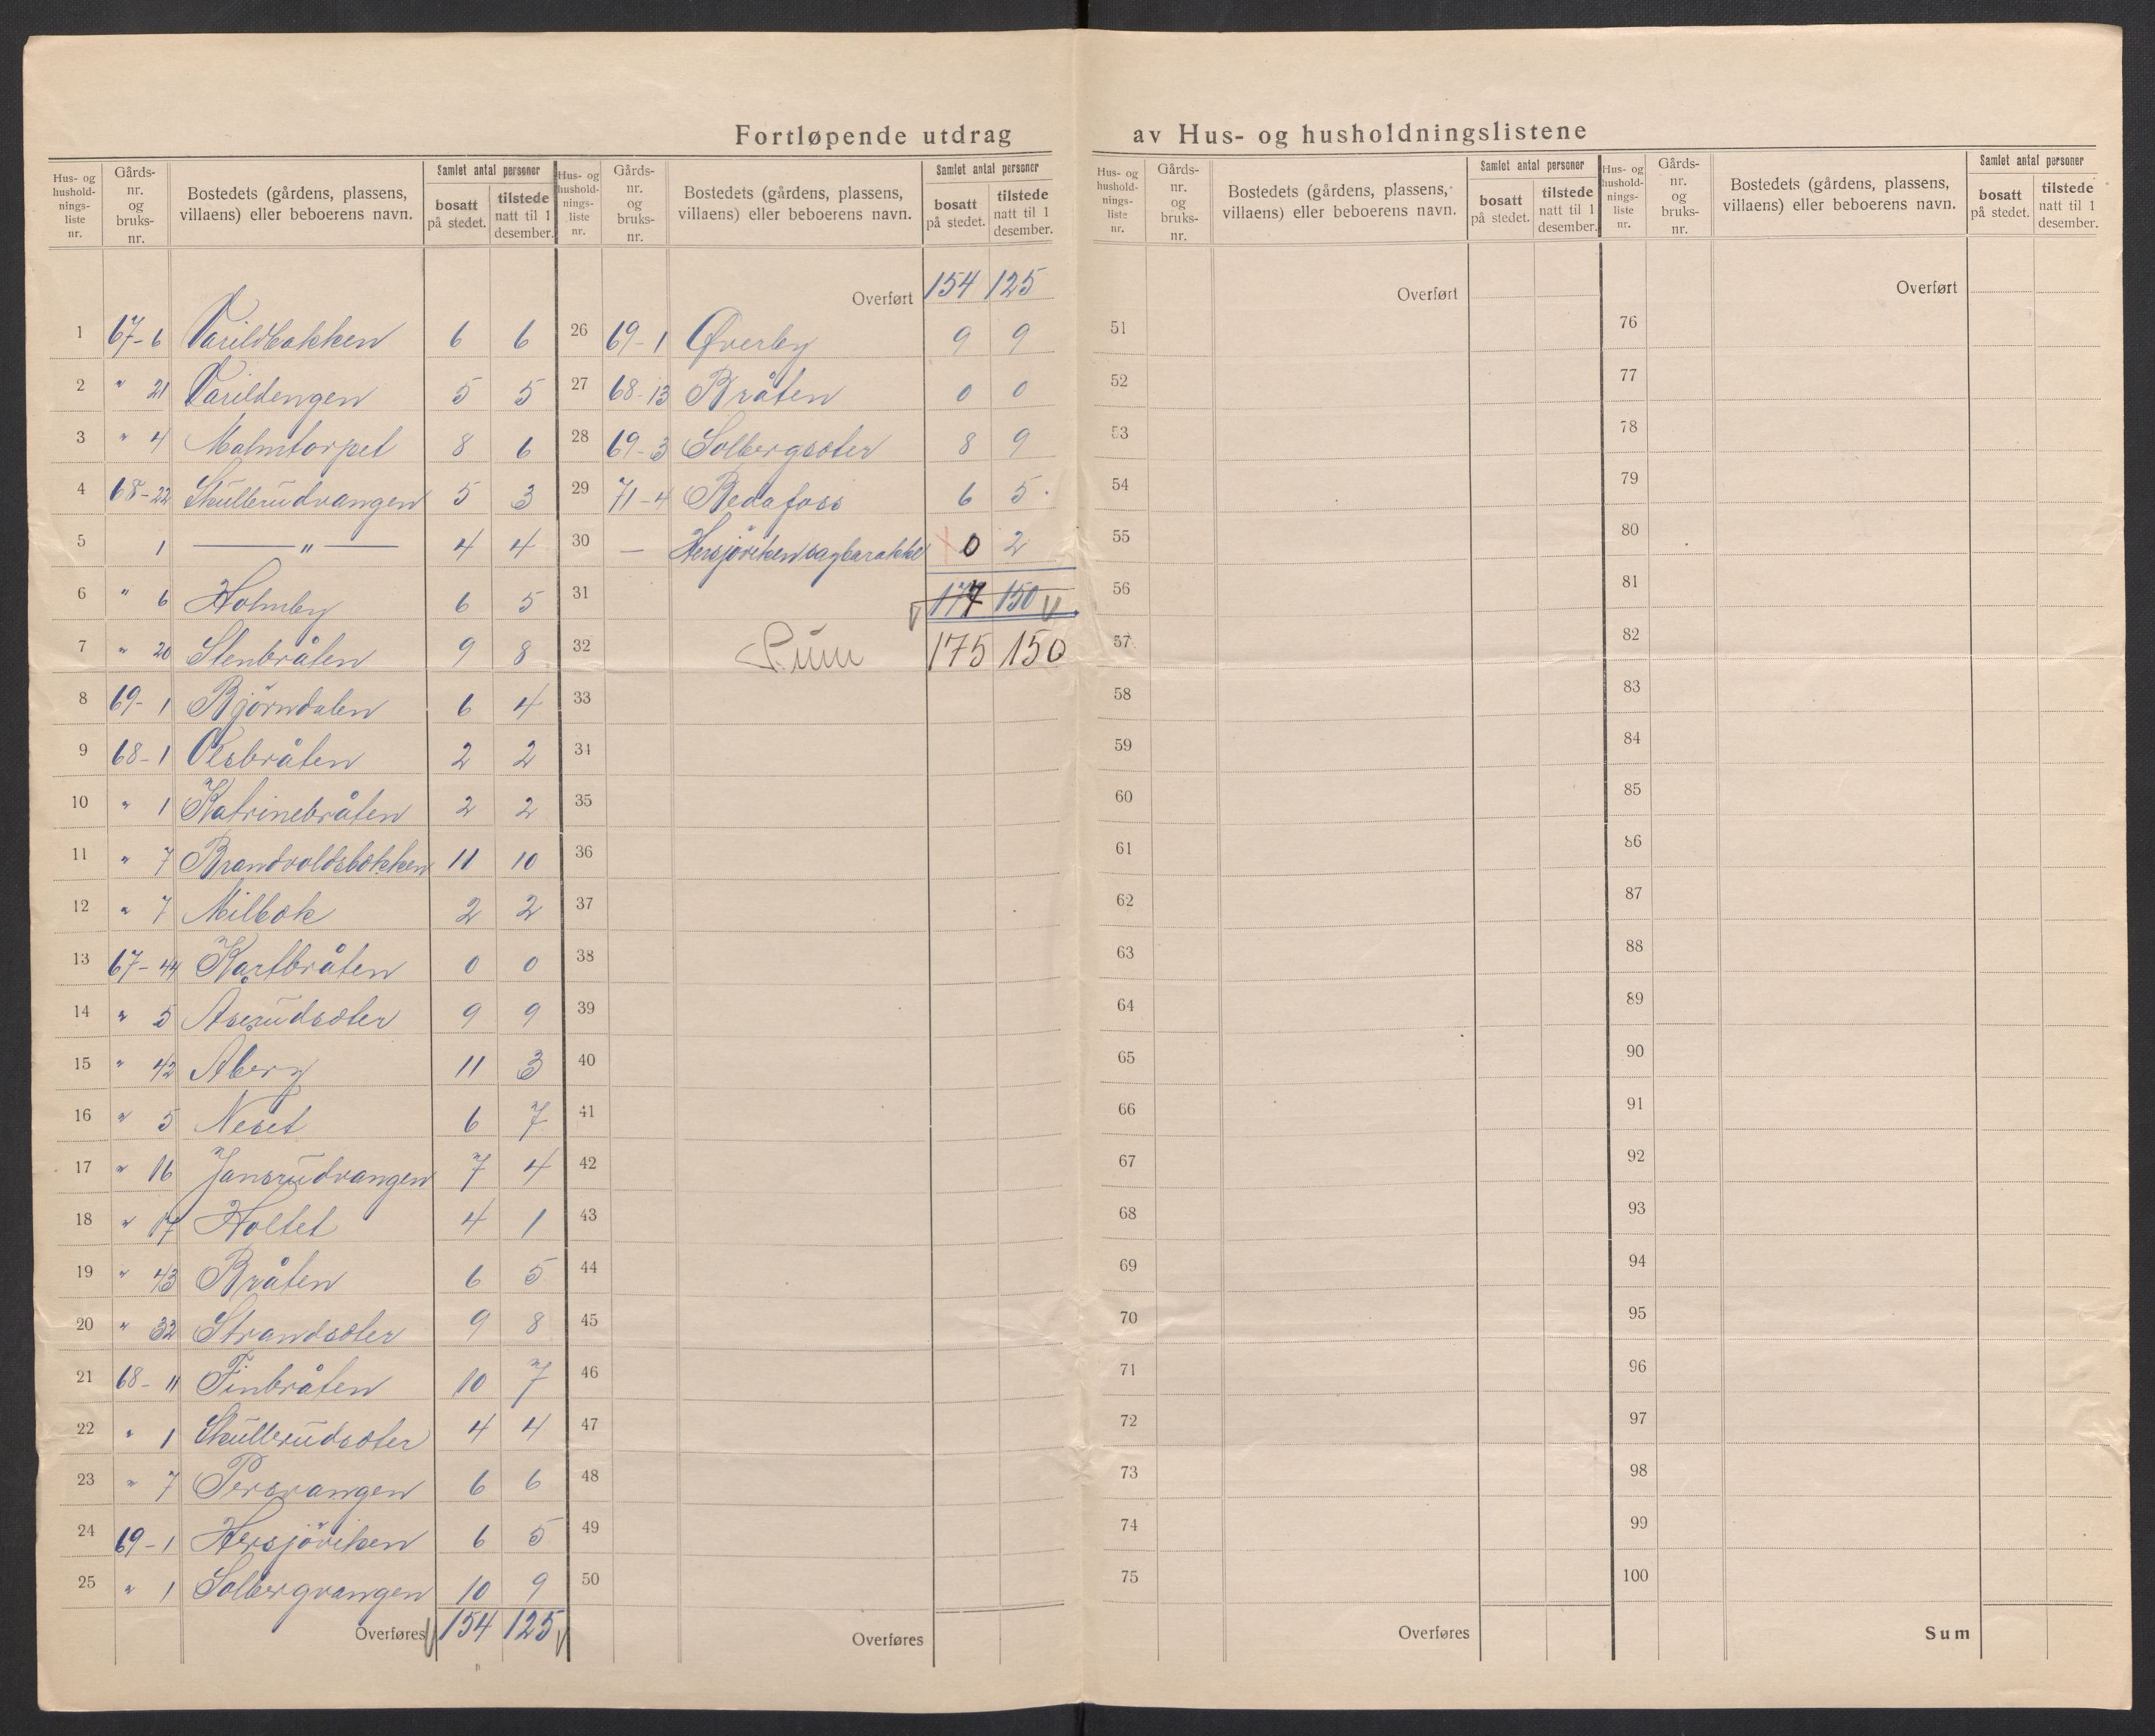 Fortløpende utdrag av Hus- og husholdningslistene
Hus- og hushold-nings-liste nr. | Gårds-nr. og bruks-nr. | Bostedets (gårdens, plassens, villaens) eller beboerens navn. | Samlet antal personer | bosatt på stedet. | tilstede natt til 1 desember.
1 67-6 Varildbakken 6 6
2 " 21 Varildengen 5 5
3 " 4 Malmtorpet 8 6
4 68-22 Skullerudvangen 5 3
5 1 — " — 4 4
6 " 6 Holmby 6 5
7 " 20 Stenbråten 9 8
8 69-1 Bjørndalen 6 4
9 68-1 Olsbråten 2 2
10 " 1 Katrinebråten 2 2
11 " 7 Brandvoldsbakken 11 10
12 " 7 Milbæk 2 2
13 67-44 Kartbråten 0 0
14 " 5 Åserudsæter 9 9
15 " 42 Åberg 11 3
16 " 5 Neset 6 7
17 " 16 Jansrudvangen 7 4
18 " 17 Holtet 4 1
19 " 43 Bråten 6 5
20 " 32 Strandsæter 9 8
21 68-11 Finbråten 10 7
22 " 1 Skullerudsæter 4 4
23 " 7 Persvangen 6 6
24 69-1 Hersjøviken 6 5
25 " 1 Solbergvangen 10 9
Overføres 154 125
Hus- og hushold-nings-liste nr. | Gårds-nr. og bruks-nr. | Bostedets (gårdens, plassens, villaens) eller beboerens navn. | Samlet antal personer | bosatt på stedet. | tilstede natt til 1 desember.
Overført 154 125
26 69-1 Øverby 9 9
27 68-13 Bråten 0 0
28 69-3 Solbergsæter 8 9
29 71-4 Redafoss 6 5
30 — Hersjøviken sagbarakke 0 2
31 177 150
32 Sum 175 150
33
34
35
36
37
38
39
40
41
42
43
44
45
46
47
48
49
50
Overføres
Hus- og hushold-nings-liste nr. | Gårds-nr. og bruks-nr. | Bostedets (gårdens, plassens, villaens) eller beboerens navn. | Samlet antal personer | bosatt på stedet. | tilstede natt til 1 desember.
Overført
51
52
53
54
55
56
57
58
59
60
61
62
63
64
65
66
67
68
69
70
71
72
73
74
75
Overføres
Hus- og hushold-nings-liste nr. | Gårds-nr. og bruks-nr. | Bostedets (gårdens, plassens, villaens) eller beboerens navn. | Samlet antal personer | bosatt på stedet. | tilstede natt til 1 desember.
Overført
76
77
78
79
80
81
82
83
84
85
86
87
88
89
90
91
92
93
94
95
96
97
98
99
100
Sum